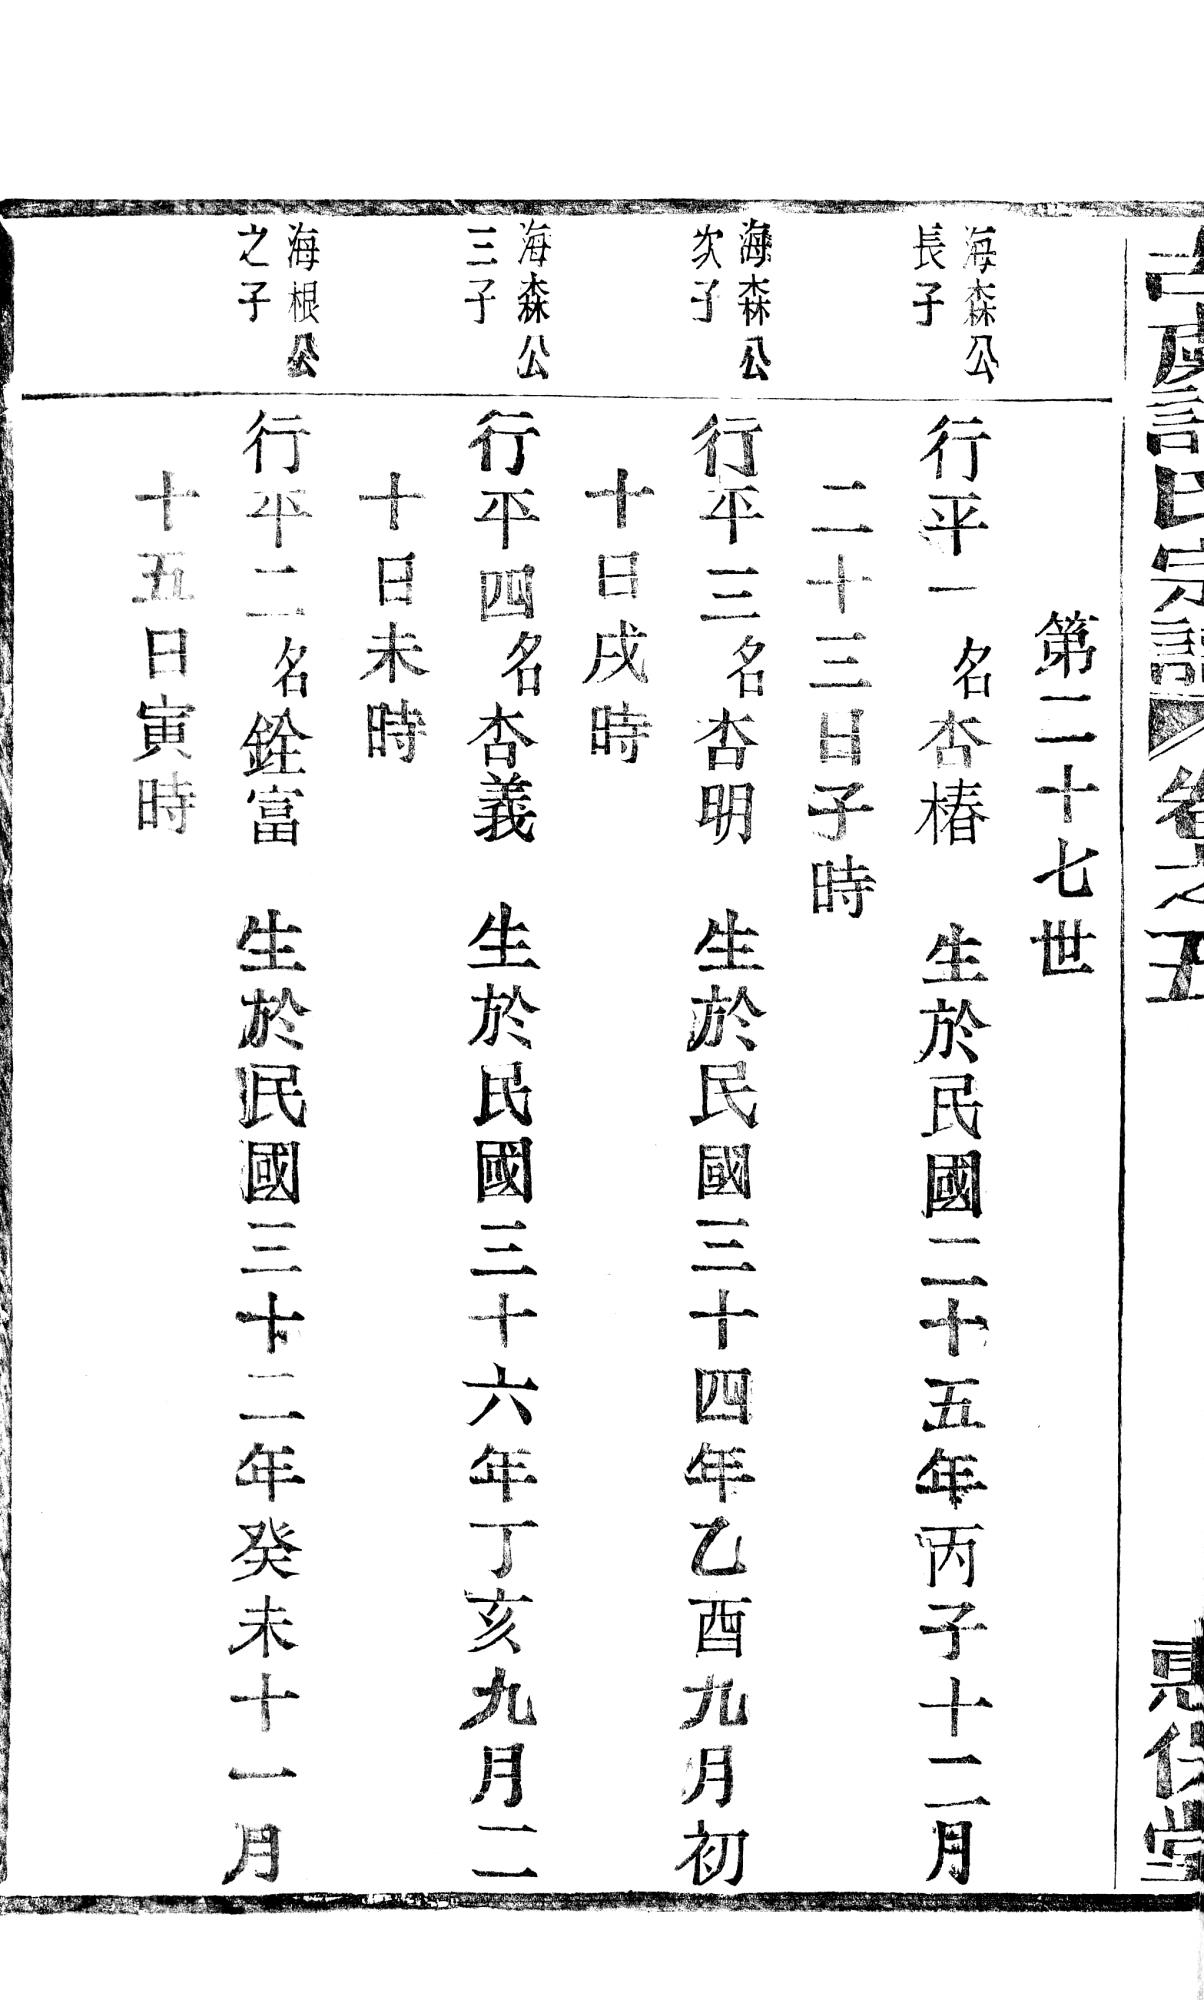 氏宗譜 卷之五 堂
第二十七世
海森公
長子
行平一 名杏椿 生於民國二十五年丙子十二月
二十三日子時
海森公
次子
行平三名杏明 生於民國三十四年乙酉九月初
十日戌時
海森公
三子
行平四名杏義 生於民國三十六年丁亥九月二
十日未時
海根公
之子
行平二名銓富 生於民國三十二年癸未十一月
十五日寅時